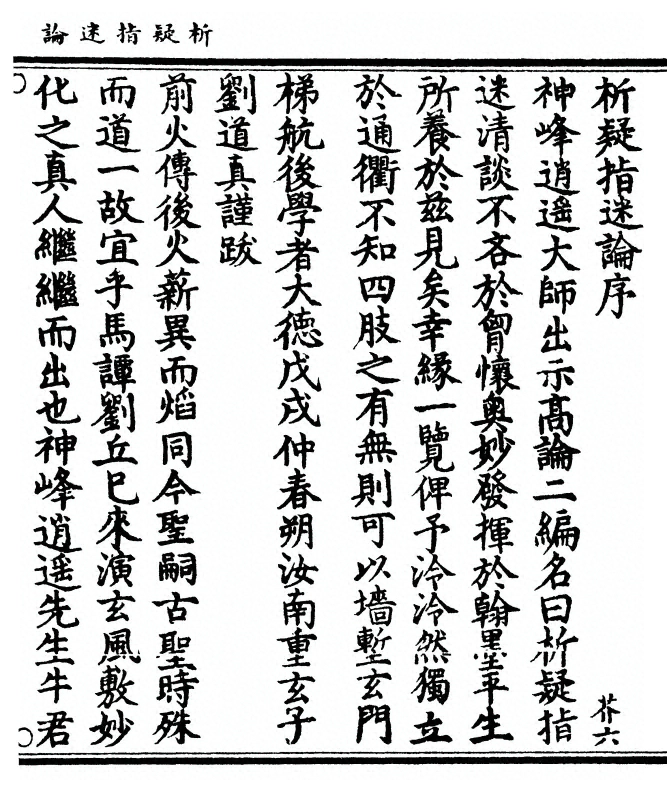 析疑指迷論
析疑指迷論序
芥六
神峰逍遥大師出示高論二編名曰析疑指
迷清談不吝於胷懷奧妙發揮於翰墨平生
所養於兹見矣幸緣一覽俾予泠泠然獨立
於通衢不知四肢之有無則可以墻塹玄門
梯航後學者大德戊戌仲春朔汝南重玄子
劉道真謹跋
前火傳後火薪異而焰同今聖嗣古聖時殊
而道一故宜乎馬譚劉丘已來演玄風敷妙
化之真人繼繼而出也神峰逍遥先生牛君